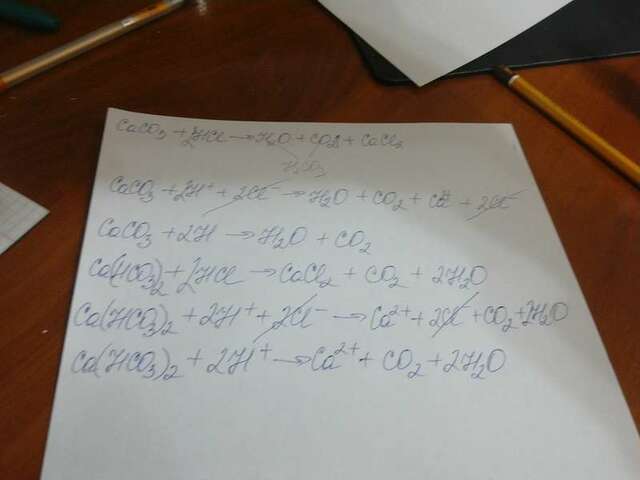 CaCO₃ + 2HCl → H₂O + CO₂ + CaCl₂
H₂CO₃
CaCO₃ + 2H⁺ + 2Cl⁻ → H₂O + CO₂ + Ca²⁺ + 2Cl⁻
CaCO₃ + 2H → H₂O + CO₂
Ca(HCO₃)₂ + 2HCl → CaCl₂ + CO₂ + 2H₂O
Ca(HCO₃)₂ + 2H⁺ + 2Cl⁻ → Ca²⁺ + 2Cl⁻ + CO₂ + 2H₂O
Ca(HCO₃)₂ + 2H⁺ → Ca²⁺ + CO₂ + 2H₂O